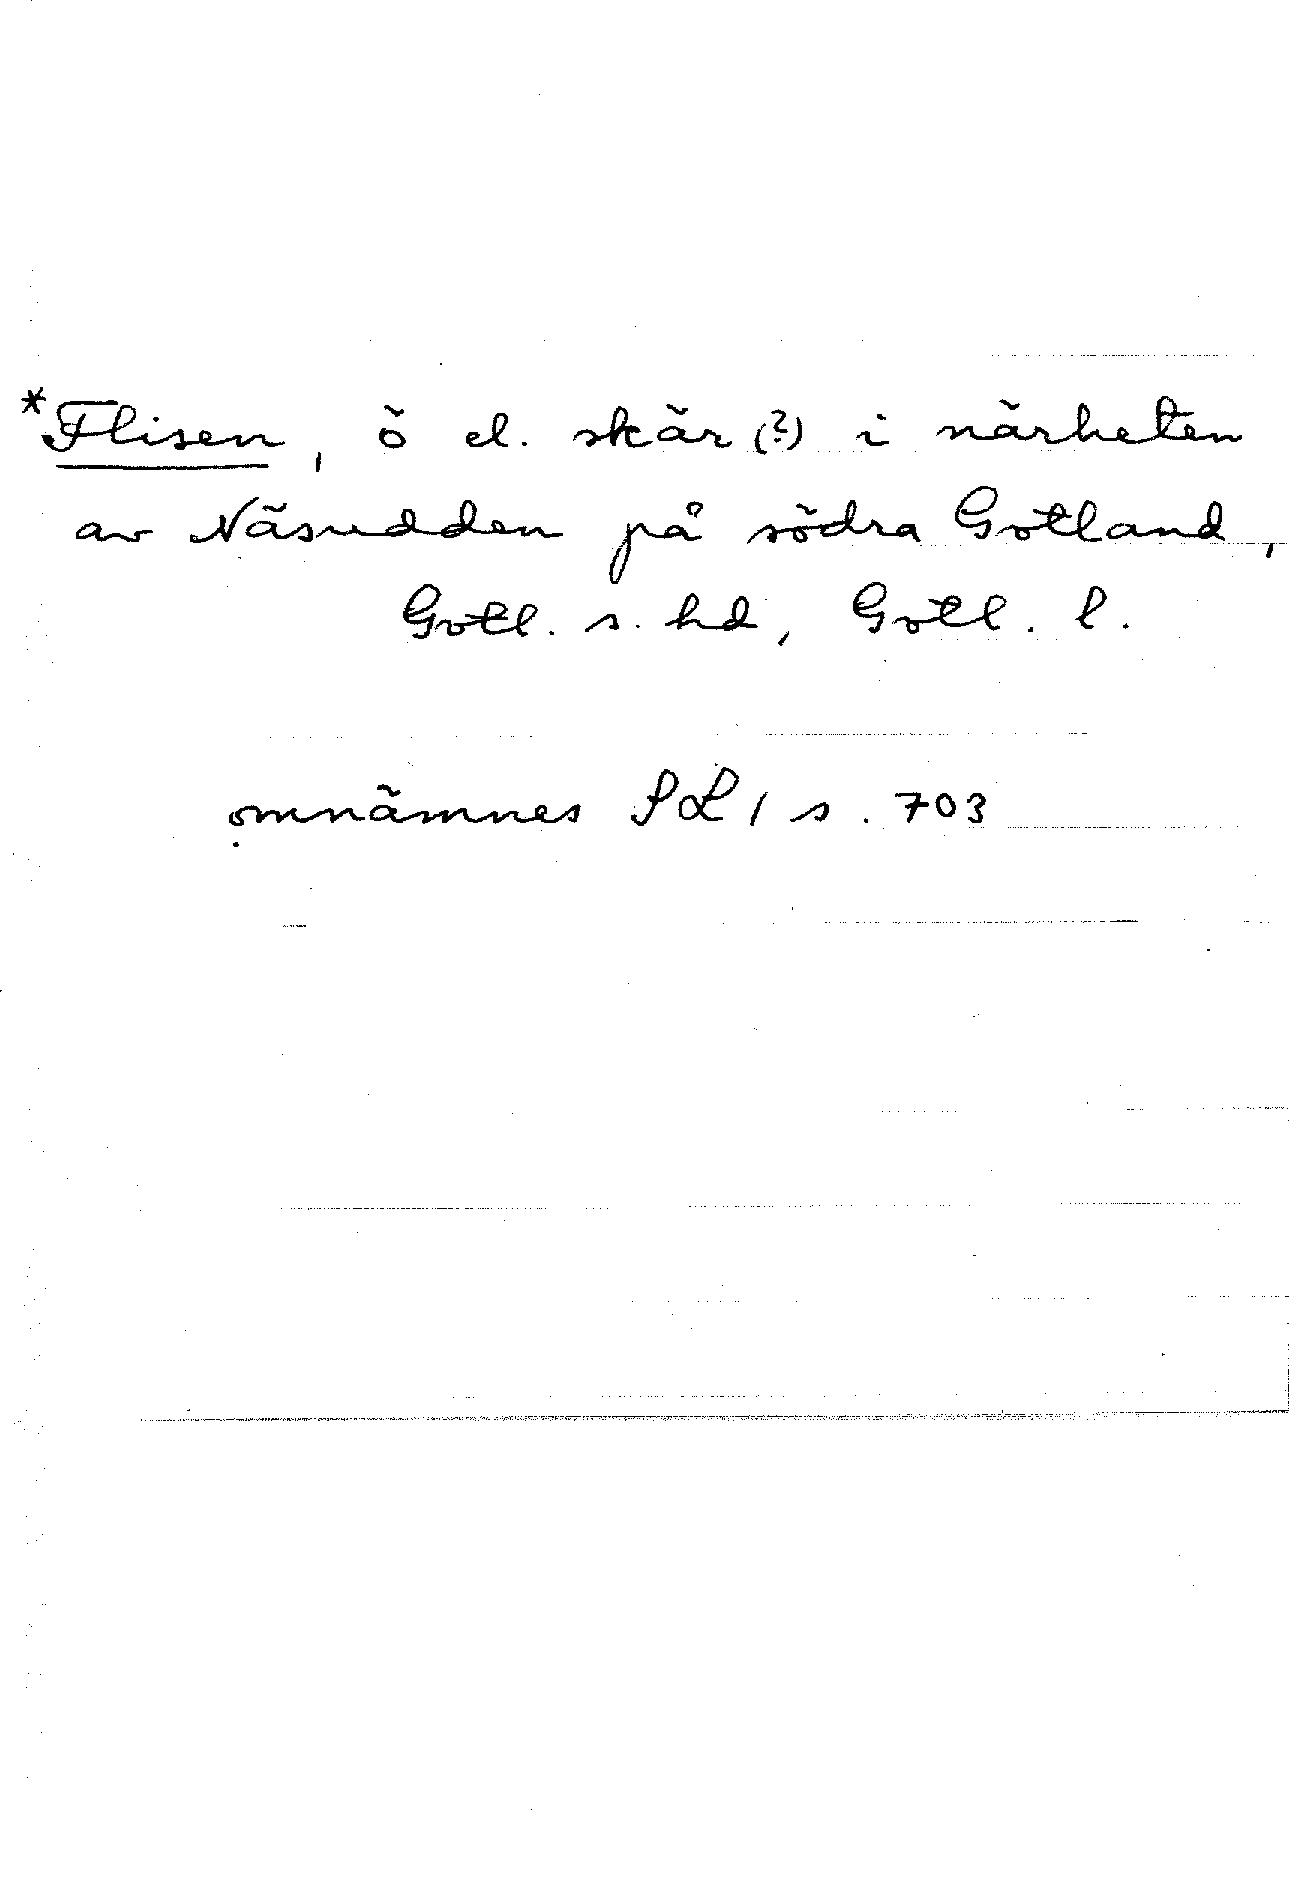 *Flisen, ö el. skär (?) i närheten
av Näsudden på södra Gotland,
Gotl. s. hd, Gotl. l.
omnämnes SL 1 s. 703